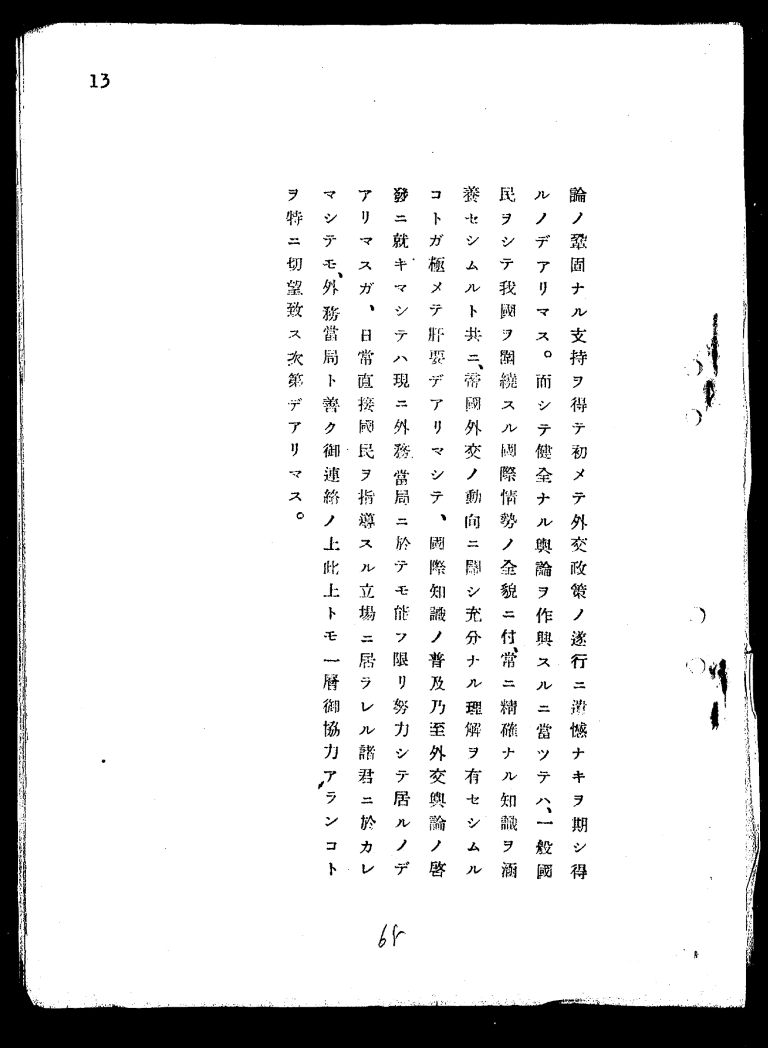 13
論ノ鞏固ナル支持ヲ得テ初メテ外交政策ノ遂行ニ遺憾ナキヲ期シ得
ルノデアリマス。而シテ健全ナル輿論ヲ作興スルニ當ツテハ、一般國
民ヲシテ我國ヲ圍繞スル國際情勢ノ全貌ニ付、常ニ精確ナル知識ヲ涵
養セシムルト共ニ、帝國外交ノ動向ニ關シ充分ナル理解ヲ有セシムル
コトガ極メテ肝要デアリマシテ、國際知識ノ普及乃至外交輿論ノ啓
發ニ就キマシテハ現ニ外務當局ニ於テモ能フ限リ努力シテ居ルノデ
アリマスガ、日常直接國民ヲ指導スル立場ニ居ラレル諸君ニ於カレ
マシテモ、外務當局ト善ク御連絡ノ上此上トモ一層御協力アランコト
ヲ特ニ切望致ス次第デアリマス。